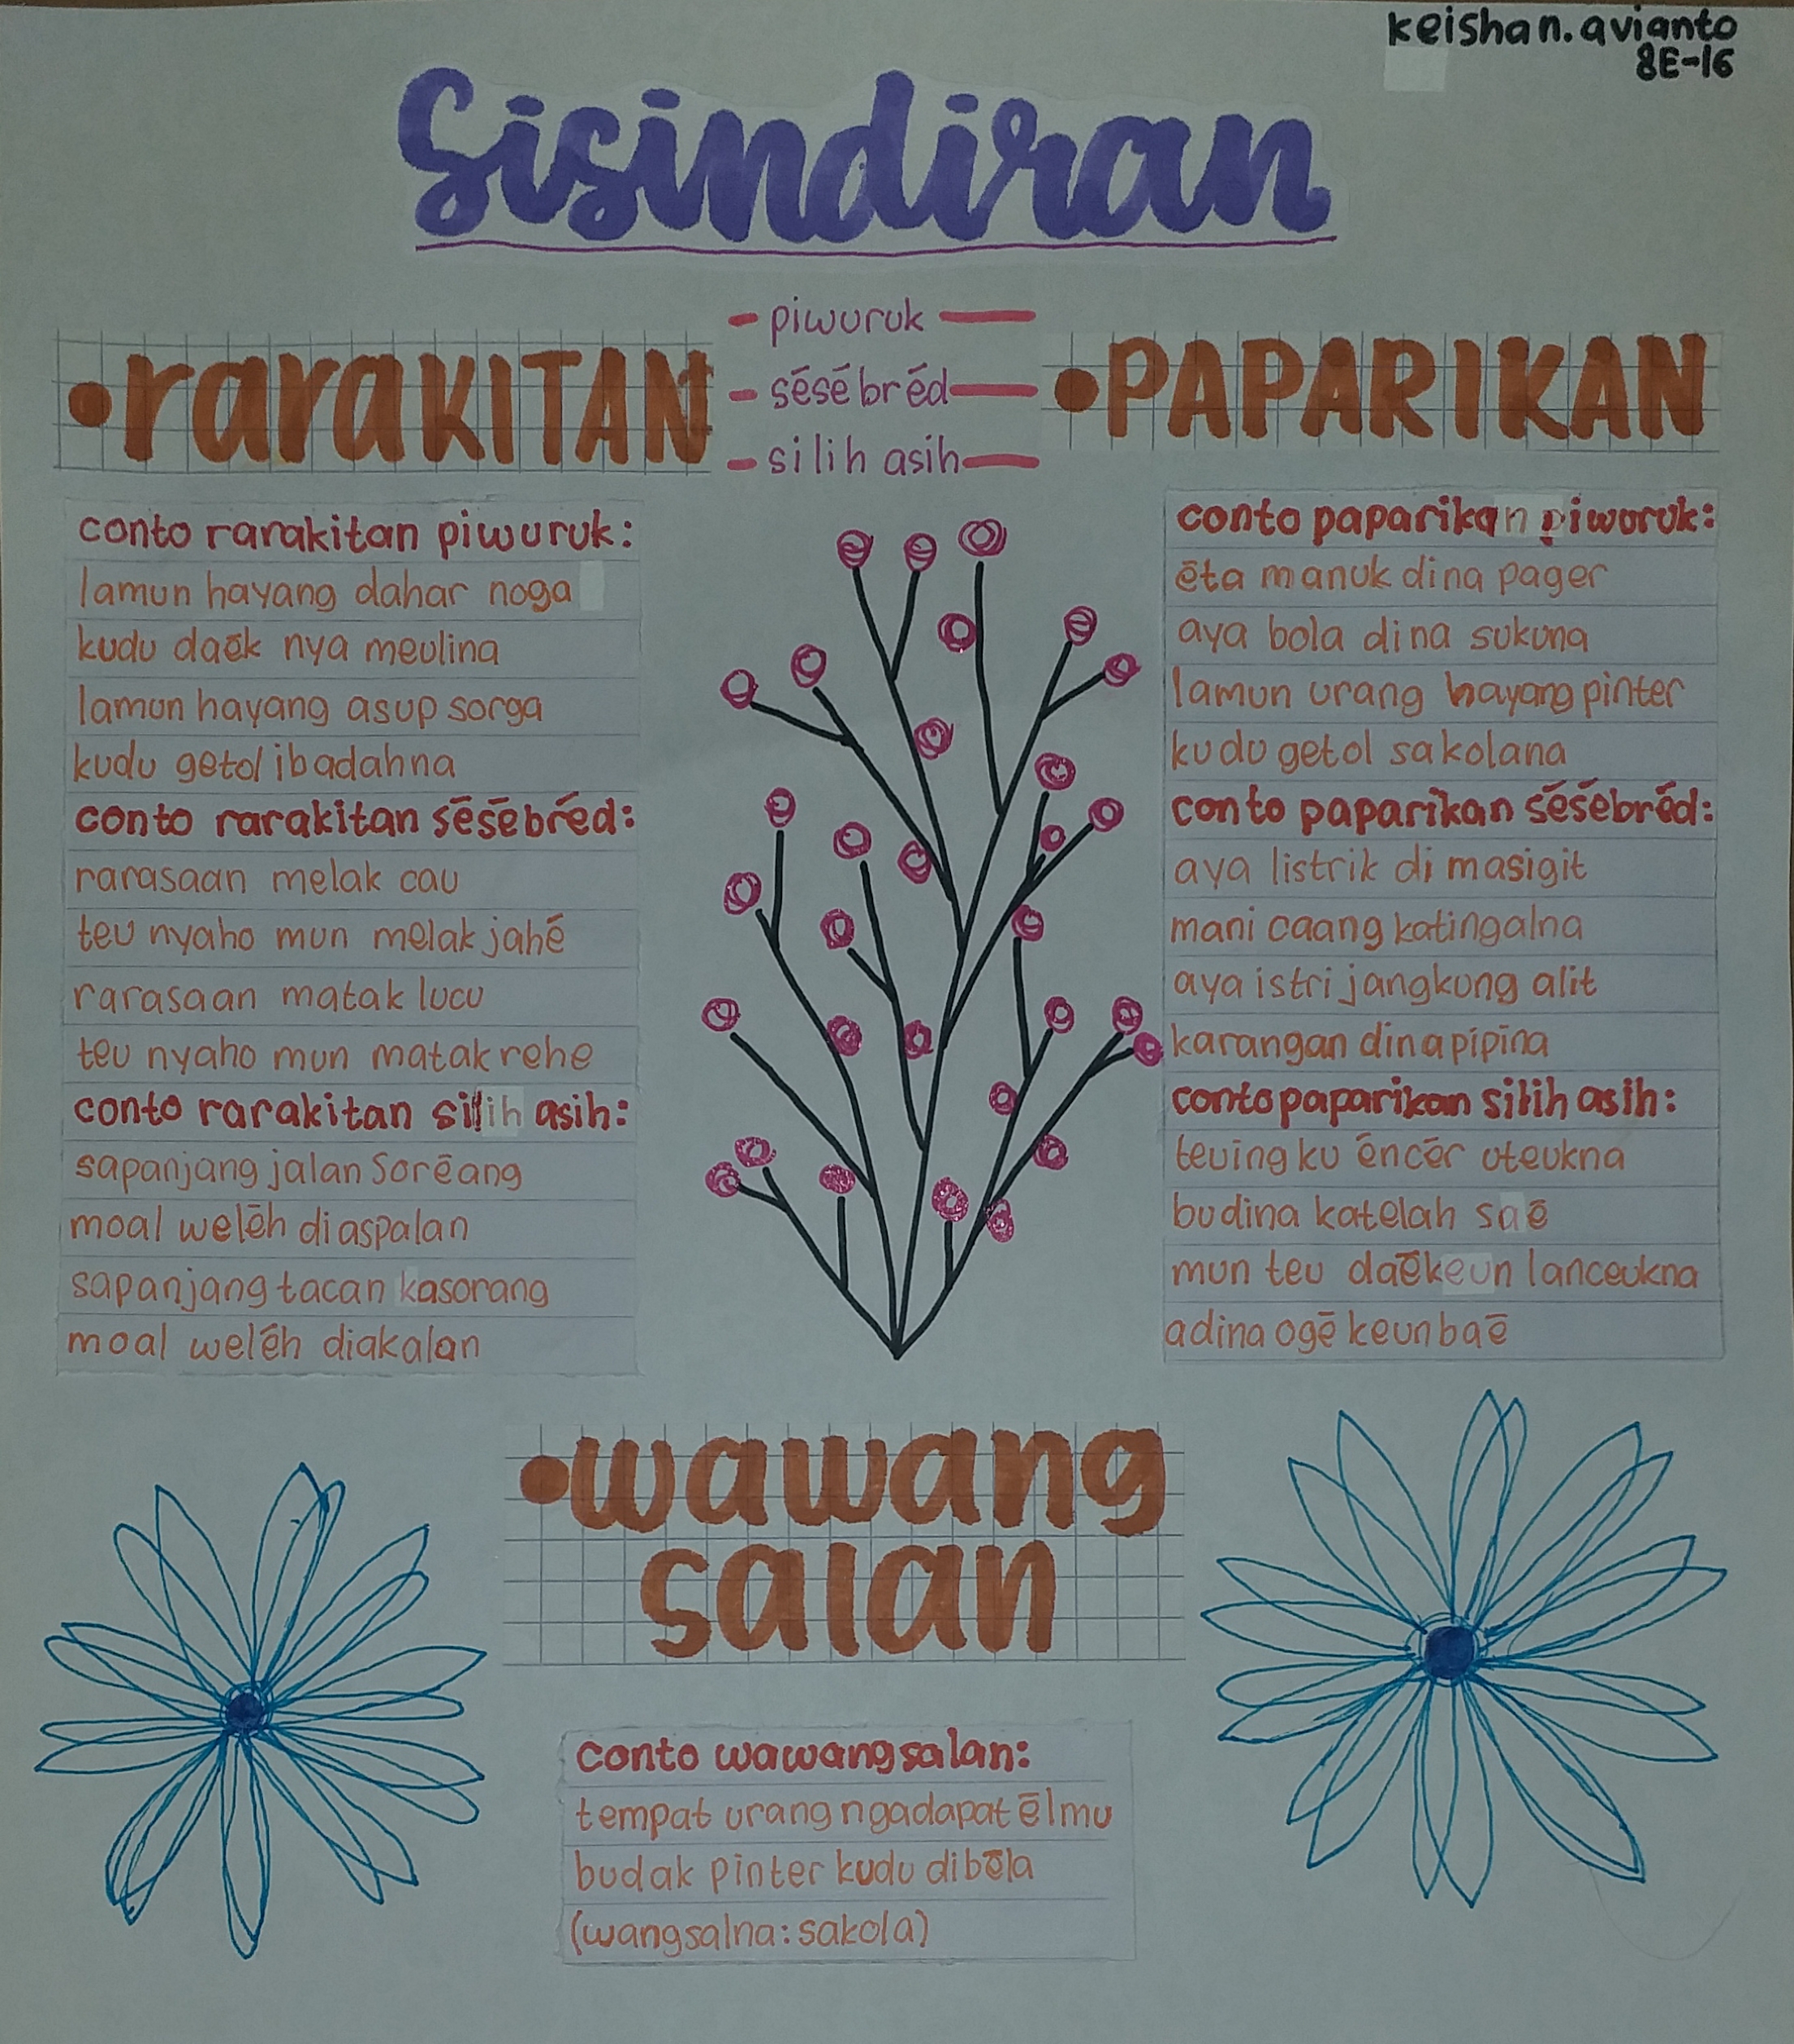 keishan.avianto
8E-16
Sisindiran
•rarakITAN
- piwuruk —
- sésébréd —
- silih asih —
•PAPARIKAN
conto rarakitan piwuruk:
lamun hayang dahar noga
kudu daék nya meulina
lamun hayang asup sorga
kudu getol ibadahna
conto rarakitan sésébréd:
rarasaan melak cau
teu nyaho mun melak jahé
rarasaan matak lucu
teu nyaho mun matak rehe
conto rarakitan silih asih:
sapanjang jalan Soréang
moal weléh diaspalan
sapanjang tacan kasorang
moal weléh diakalan
conto paparikan piwuruk:
éta manuk dina pager
aya bola dina sukuna
lamun urang hayang pinter
kudu getol sakolana
conto paparikan sésébréd:
aya listrik di masigit
mani caang katingalna
aya istri jangkung alit
karangan dina pipina
conto paparikan silih asih:
teuing ku éncér uteukna
budina katelah saé
mun teu daékeun lanceukna
adina ogé keun baé
•wawang
salan
conto wawangsalan:
tempat urang ngadapat élmu
budak pinter kudu dibéla
(wangsalna: sakola)